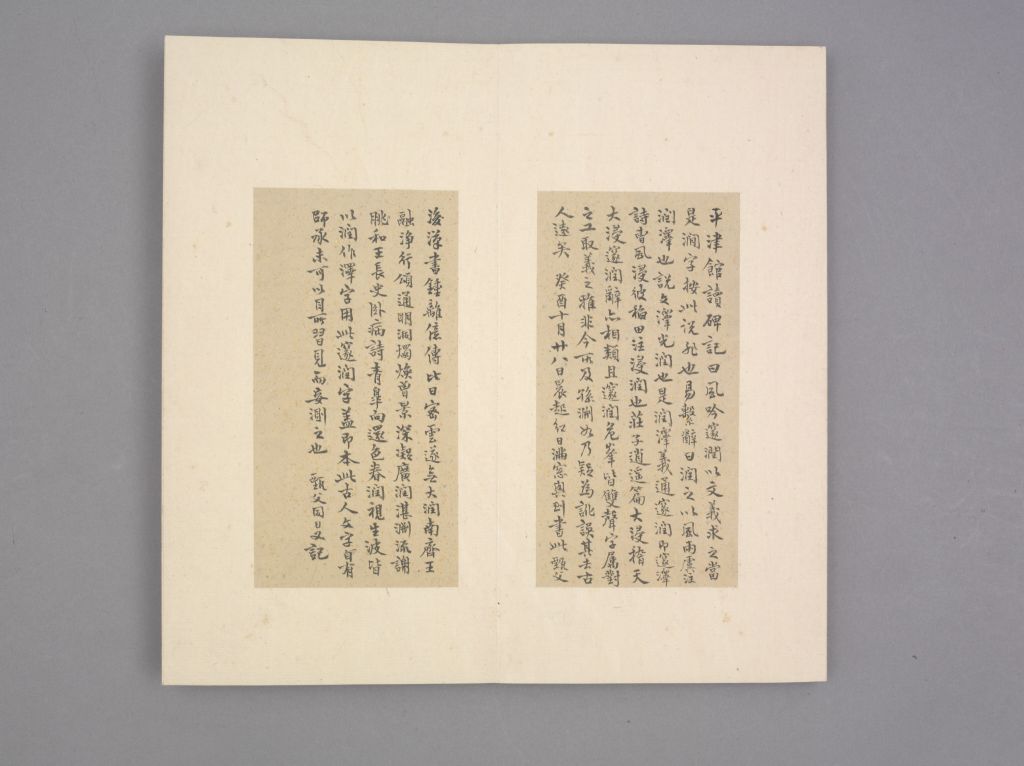 平津館讀碑記曰風吟邃潤以文義求之當
是澗字按此説非也易繫辭曰潤之以風雨虞注
潤澤也説文澤光潤也是潤澤義通邃潤即邃澤
詩曹風浸彼稻田注浸潤也莊子逍遙篇大浸稽天
大浸邃潤辭亦相類且邃潤危峯皆雙聲字屬對
之工取義之雅非今所及孫淵如乃疑為訛誤其去古
人遠矣 癸酉十月廿八日晨起紅日滿窓輿到書此 甄父
後漢書鍾離意傳比日密雲遂無大潤南齊王
融淨行頌通明洞燭煥曽景深凝廣潤湛淵流謝
眺和王長史卧病詩青皐向還色春潤視生波皆
以潤作澤字用此邃潤字蓋即本此古人文字自有
師承未可以目所習見而妄測之也 甄父同日又記